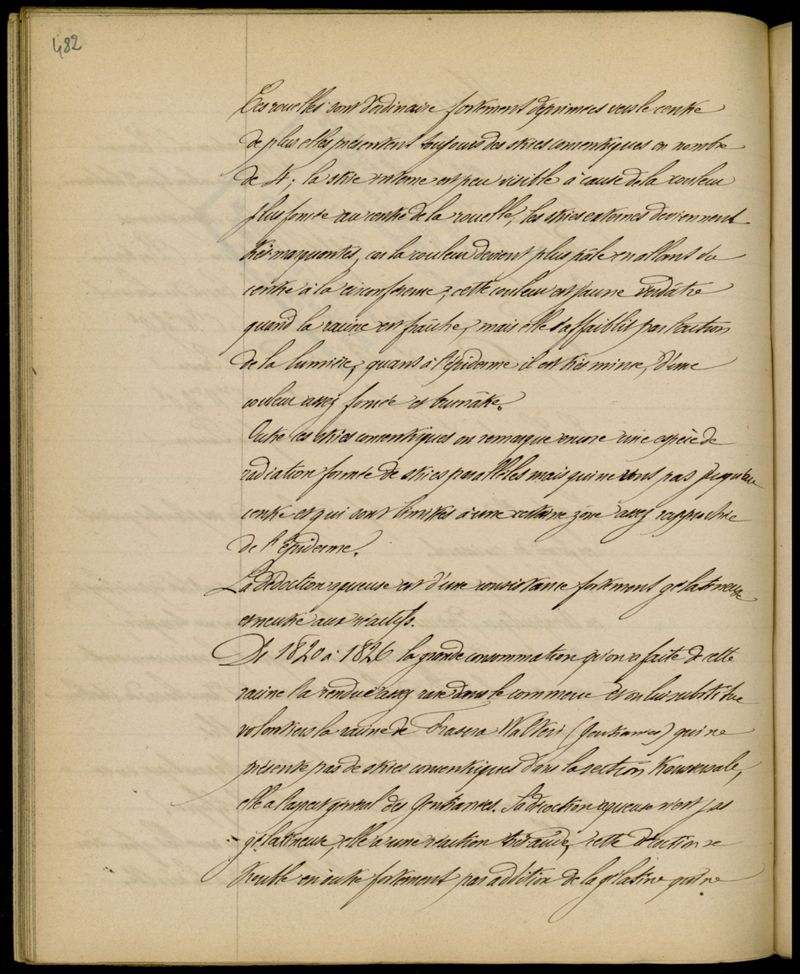 482
Ces rouelles sont d'ordinaire fortement déprimées vers le centre
de plus elles présentent toujours des stries concentriques en nombre
de 4; la strie interne est peu visible à cause de la couleur
plus foncée au centre de la rouelle, les stries externes deviennent
très marquantes, car la couleur devient plus pâle en allant du
centre à la circonférence; cette couleur est jaune verdâtre
quand la racine est fraîche, mais elle s'affaiblit par l'action
de la lumière, quant à l'épiderme il est très mince, d'une
couleur assez foncée et brunâtre.
Outre ces stries concentriques on remarque encore une espèce de
radiation formée de stries parallèles mais qui ne vont pas jusqu'au
centre et qui sont limitées à une certaine zone assez rapprochée
de l'épiderme.
La décoction aqueuse est d'une consistance fortement gélatineuse
et neutre aux réactifs.
De 1820 à 1826 la grande consommation qu'on a faite de cette
racine l'a rendue assez rare dans le commerce et on lui substitue
volontiers la racine de Frasera Walteri (Gentianées) qui ne
présente pas de stries concentriques dans la section transversale,
elle a l'aspect général des Gentianes. Sa décoction aqueuse n'est pas
gélatineuse, elle a une réaction très acide, cette décoction se
trouble en outre fortement par addition de la gélatine qui ne